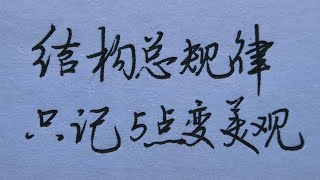 结构总规律
只记5点变美观